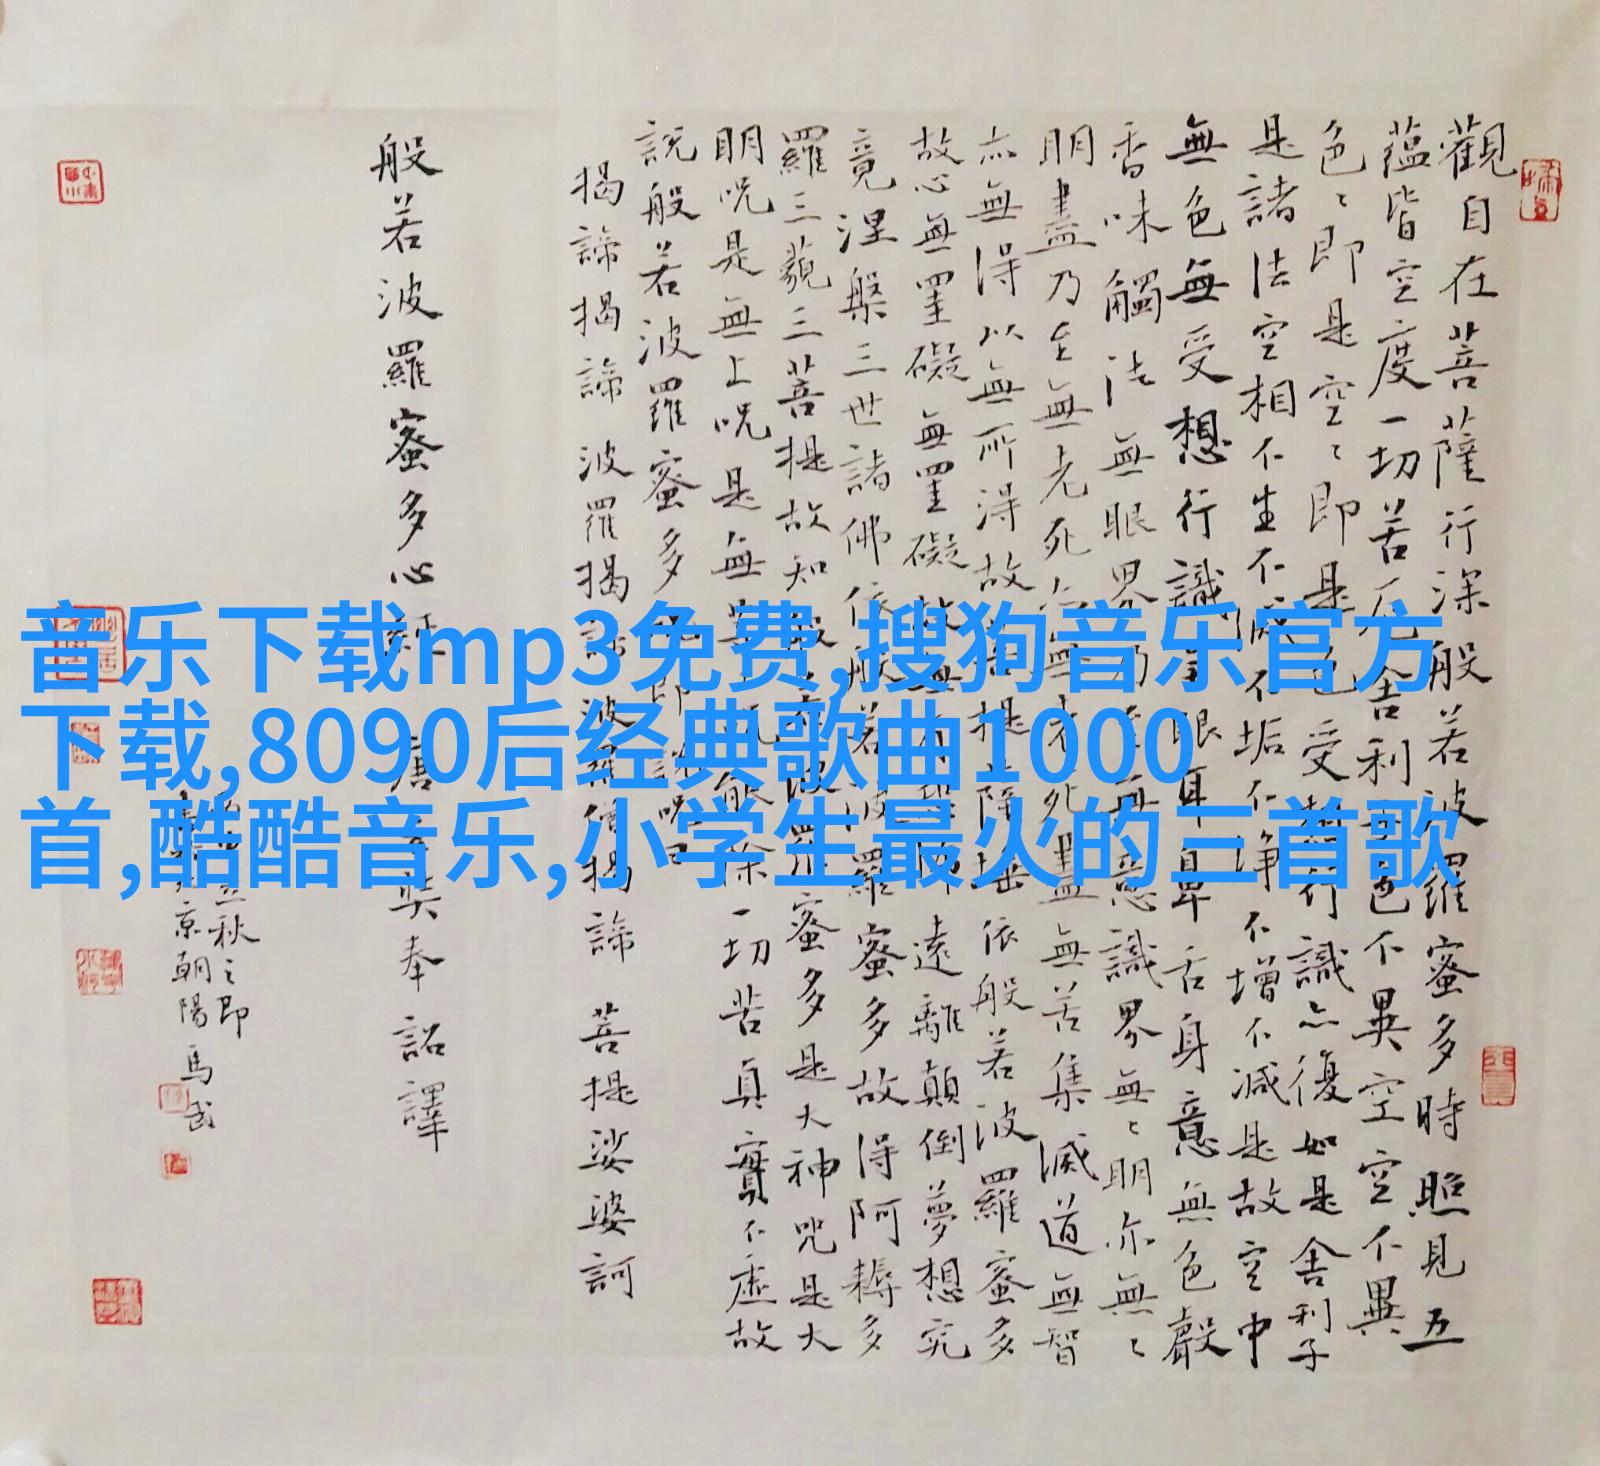 音乐下载mp3免费,搜狗音乐官方
下载,8090后经典歌曲1000
首,酷酷音乐,小学生最火的三首歌
觀自在菩薩行深般若波羅蜜多時照見五
蘊皆空度一切苦厄舍利子色不異空空不異
色〻即是空〻即是色受想行識亦復如是舍利子
是諸法空相不生不滅不垢不淨不增不減是故空中
無色無受想行識無眼耳鼻舌身意無色聲
香味觸法無眼界乃至無意識界無〻明亦無〻
明盡乃至無老死亦無老死盡無苦集滅道無智
亦無得以無所得故菩提薩埵依般若波羅蜜多
故心無罣礙無罣礙故無有恐怖遠離顛倒夢想究
竟涅槃三世諸佛依般若波羅蜜多故得阿耨多
羅三藐三菩提故知般若波羅蜜多是大神咒是大
明呪是無上呪是無等等呪能除一切苦真實不虛故
説般若波羅蜜多呪即説呪曰
揭諦揭諦 波羅揭諦 波羅僧揭諦 菩提娑婆訶
般若波羅蜜多心經 唐玄奘奉詔譯
立秋之即
京朝陽 馬武